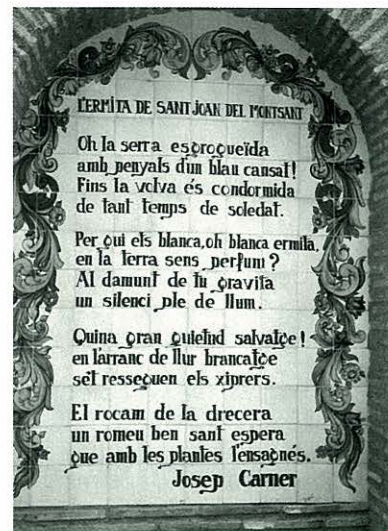 L'ERMITA DE SANT JOAN DEL MONTSANT
Oh la serra esgrogueïda
amb penyals d'un blau cansat!
Fins la volva és condormida
de tant temps de soledat.
Per qui ets blanca, oh blanca ermita,
en la terra sens perfum?
Al damunt de tu gravita
un silenci ple de llum.
Quina gran quietud salvatge!
en l'arranc de llur brancatge
se't resseguen els xiprers.
El rocam de la drecera
un romeu ben sant espera
que amb les plantes l'ensagnés.
Josep Carner